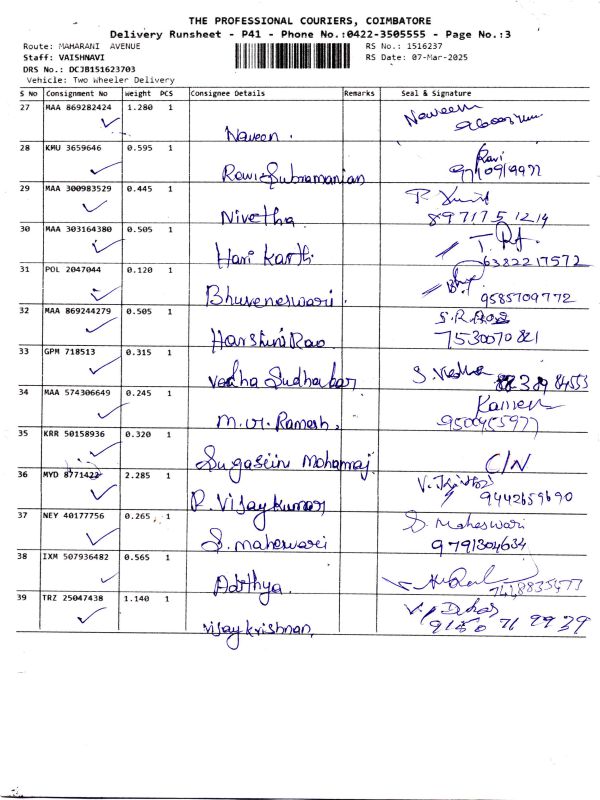 THE PROFESSIONAL COURIERS, COIMBATORE
Delivery Runsheet - P41 - Phone No.:0422-3505555 - Page No.:3
Route: MAHARANI AVENUE RS No.: 1516237
Staff: VAISHNAVI RS Date: 07-Mar-2025
DRS No.: DCJB151623703
Vehicle: Two Wheeler Delivery
S No Consignment No Weight PCS Consignee Details Remarks Seal & Signature
27 MAA 869282424 1.280 1 Naveen. Naveen
28 KMU 3659646 0.595 1 Ravi Subramanian Ravi
29 MAA 300983529 0.445 1 Nivetha
8971751214
30 MAA 303164380 0.505 1 Hari Karthi
6382217572
31 POL 2047044 0.120 1 Bhuveneswari.
9585709772
32 MAA 869244279 0.505 1 Harshini Rao
7530070821
33 GPM 718513 0.315 1 Vedha Sudhakar S. Vedha
34 MAA 574306649 0.245 1 M.VI. Ramesh,
9500455977
35 KRR 50158936 0.320 1 C/N
36 MYD 8771422 2.285 1 R. Vijaykumar
9442659690
37 NEY 40177756 0.265 1 S. maheswari S. Maheswari
9791304634
38 IXM 507936482 0.565 1 Adithya.
39 TRZ 25047438 1.140 1 Vijaykrishnan,
9150 71 9939